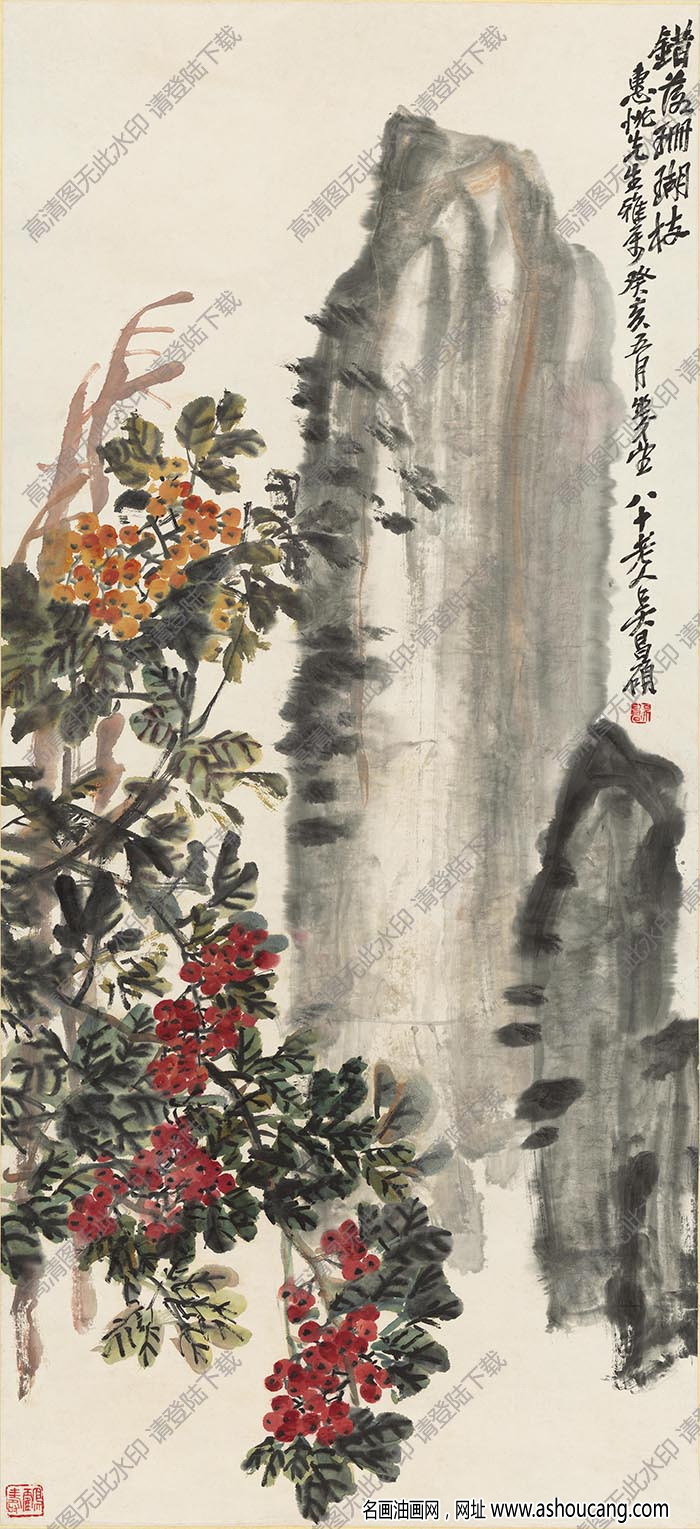 錯落珊瑚枝
惠忱先生雅予癸亥五月譽堂八十老人吳昌碩
高清图无此水印 请登陆下载
名画油画网，网址 www.ashoucang.com